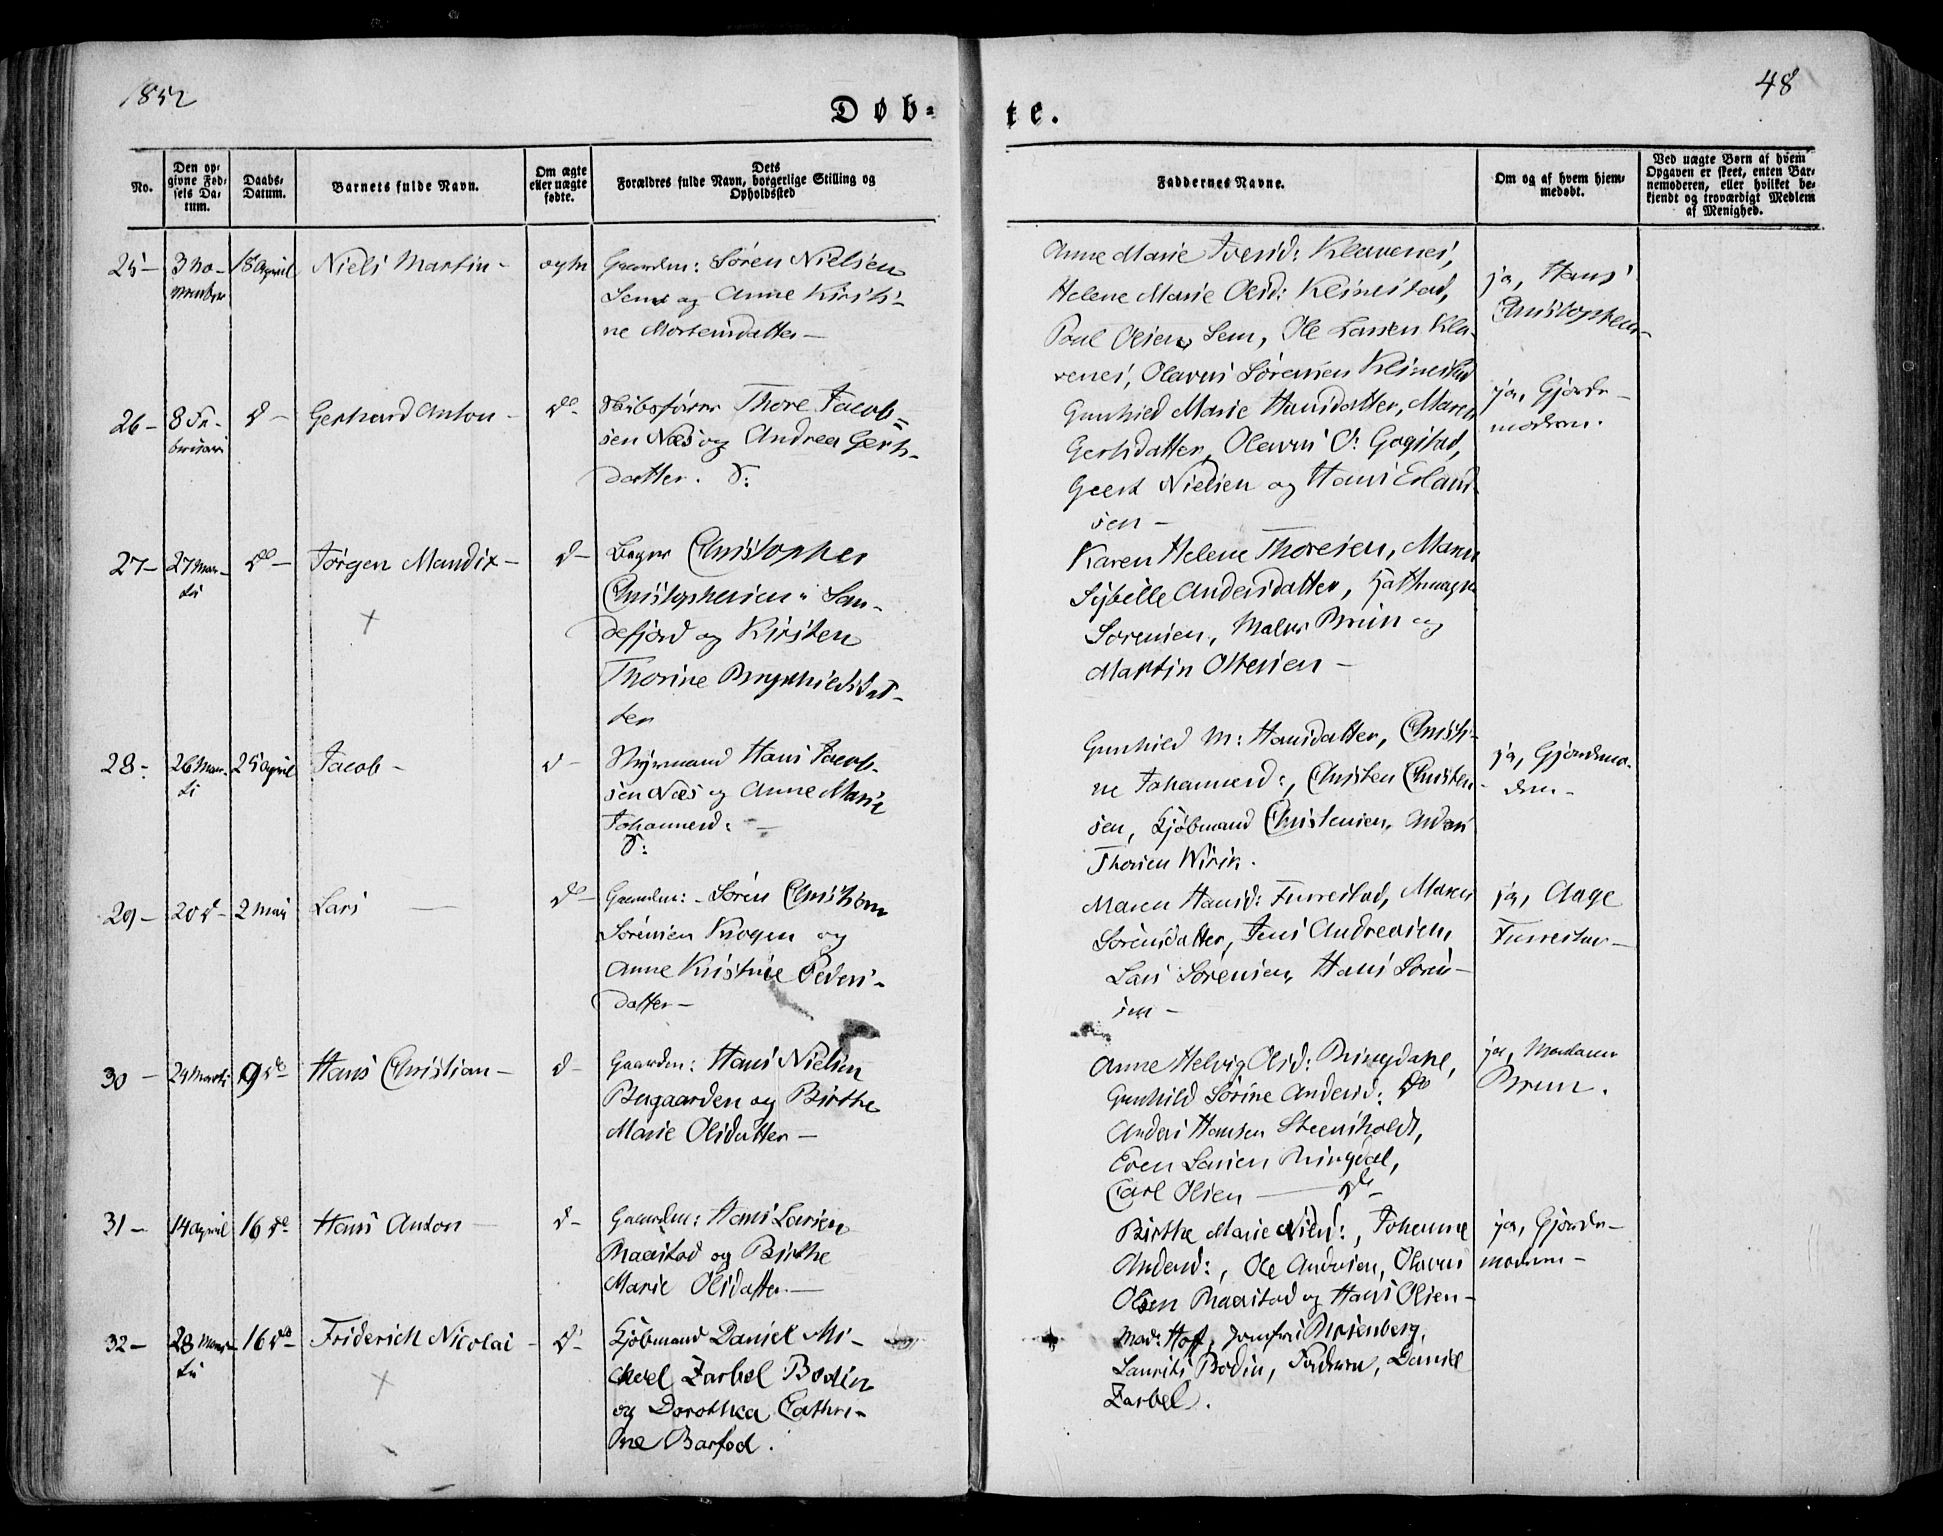 1852
48
Døb-
te.
No.
Den op-
givne Fød-
sels Da-
tum.
Daabs-
Datum.
Barnets fulde Navn.
Om ægte
eller uægte
fødte.
Dets
Forældres fulde Navn, borgerlige Stilling og
Opholdssted
Faddernes Navne.
Om og af hvem hjem-
medøbt.
Ved uægte Børn af hvem
Opgaven er skeet, enten Bar-
nemoderen, eller hvilket be-
kjendt og troværdigt Medlem
af Menighed.
25-
3 No-
vember
18 April
Niels Martin -
ægte
Gaardm: Søren Nielsen
Sem og Anne Kirsti-
ne Mortensdatter -
Anne Marie Iversd: Klavenes,
Helene Marie Olsd: Klinestad,
Poul Olsen Sem, Ole Larsen Kla-
venes, Olavus Sørensen Klinestad
ja, Hans
Christophersen
26-
8 Fe-
bruari
d -
Gerhard Anton -
do
Skibsfører Thore Jacob-
sen Næs og Andrea Gerts-
datter. S:
Gunhild Marie Hansdatter, Maren
Gertsdatter, Olavus O: Gogstad,
Geert Nielsen og Hans Erland-
sen -
ja, Gjorde-
moderen.
27-
27 Mar-
ti
do -
Jørgen Mandix -
d-
Bager Christopher
Christophersen i San-
defjord og Kirsten
Thorine Bryphildsdat-
ter
Karen Helene Thoresen, Maren
Sybille Andersdatter,
Sørensen, Brun og
Martin Ottesen -
28-
26 Mar-
ti
25 April
Jacob -
d -
Styrmand Hans Jacob-
sen Næs og Anne Marie
Johannesd: -
S:
Gunhild M: Hansdatter, Christi-
ne Johannesd:, Christen Christen-
sen, Kjøbmand Christensen, Anders
Thorsen Virik.
ja, Gjordemo-
deren -
29-
20 d-
2 Mai
Lars -
do -
Gaardm: - Søren Christian
Sørensen Krogen og
Anne Kristine Peders-
datter -
Maren Hansd: Furrestad, Maren
Sørensdatter, Jens Andreasen,
Lars Sørensen, Hans Søren-
sen -
ja, Aage
Furrestad -
30 -
24 Marti
9 do-
Hans Christian -
d-
Gaardm: Hans Nielsen
Bugaarden og Birthe
Marie Olsdatter -
Anne Helvig Olsd: Ringdahl,
Gunhild Sørine Andersd: do
Anders Hansen Steensholdt,
Even Larsen Ringdal,
Carl Olsen - do -
ja, Madam
Brun.
31 -
14 April
16 do
Hans Anton -
d-
Gaardm: Hans Larsen
Raastad og Birthe
Marie Olsdatter -
Birthe Marie Nielsd:, Johanne
Andersd:, Ole Andersen, Olavus
Olsen Raastad og Hans Olsen -
ja, Gjorde-
moderen -
32 -
28 Mar-
ti
16 do-
Friderich Nicolai -
d-
Kjøbmand Daniel Mi-
chael Zarbel Bodin
og Dorothea Cathri-
ne Barfod.
Mad: Hoff, Jomfru Rosenberg,
Laurits Bodin, Faderen, Daniel
Zarbel.